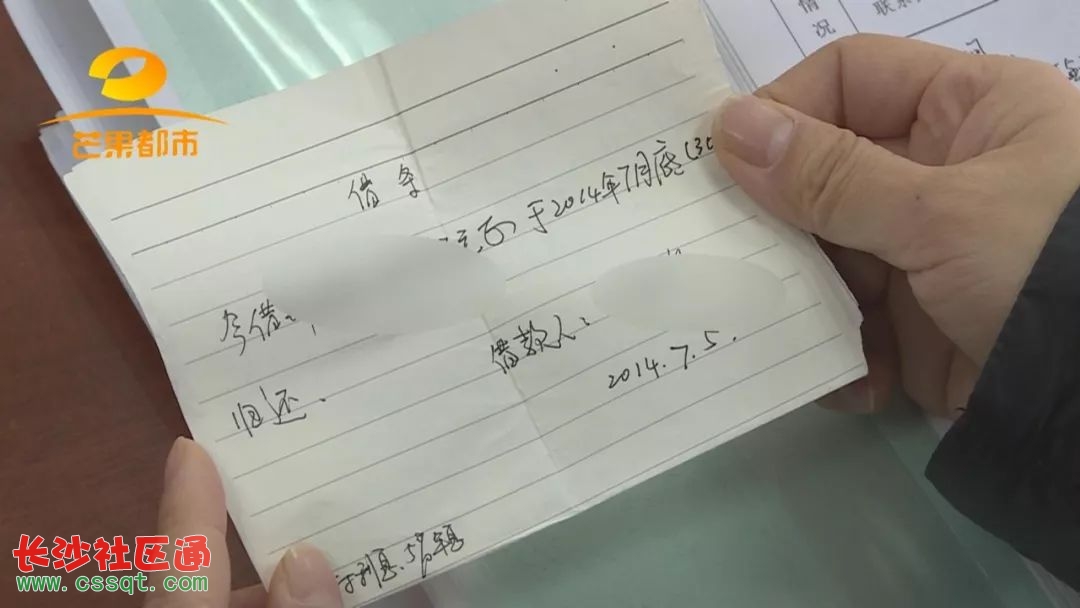 芒果都市
情
况
联系
借条
今借
元,于2014年7月底(30
归还.
借款人:
2014.7.5.
利息,5%年息
长沙社区通
www.cssqt.com